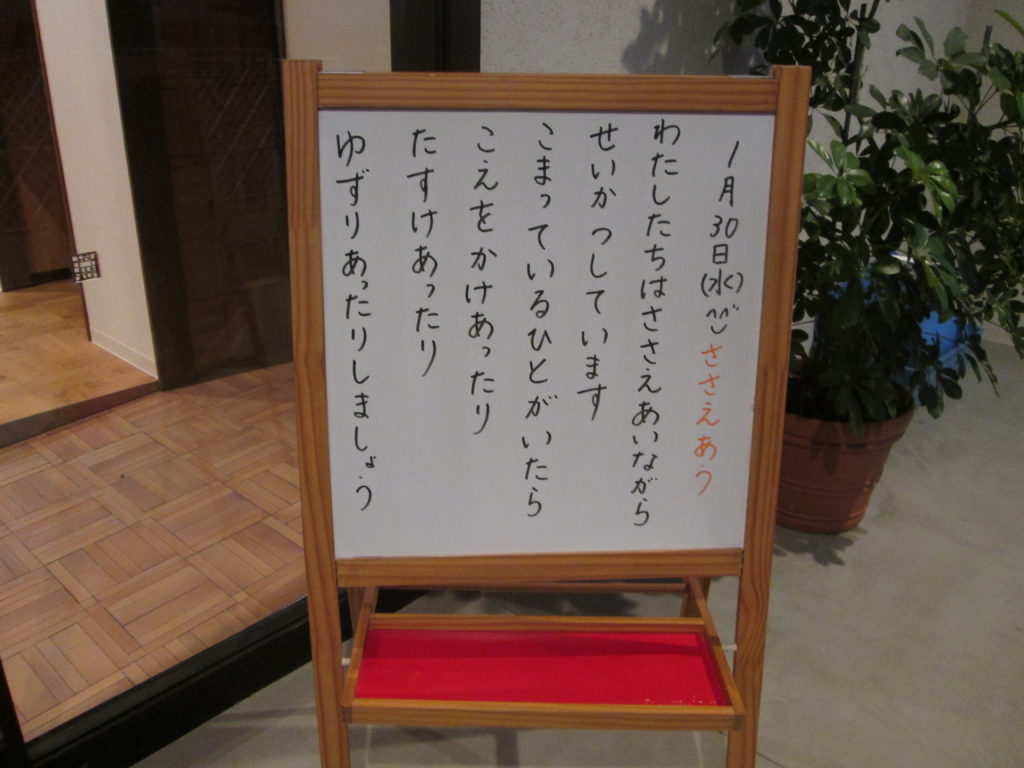 1月30日(水)^^ ささえあう
わたしたちはささえあいながら
せいかつしています
こまっているひとがいたら
こえをかけあったり
たすけあったり
ゆずりあったりしましょう